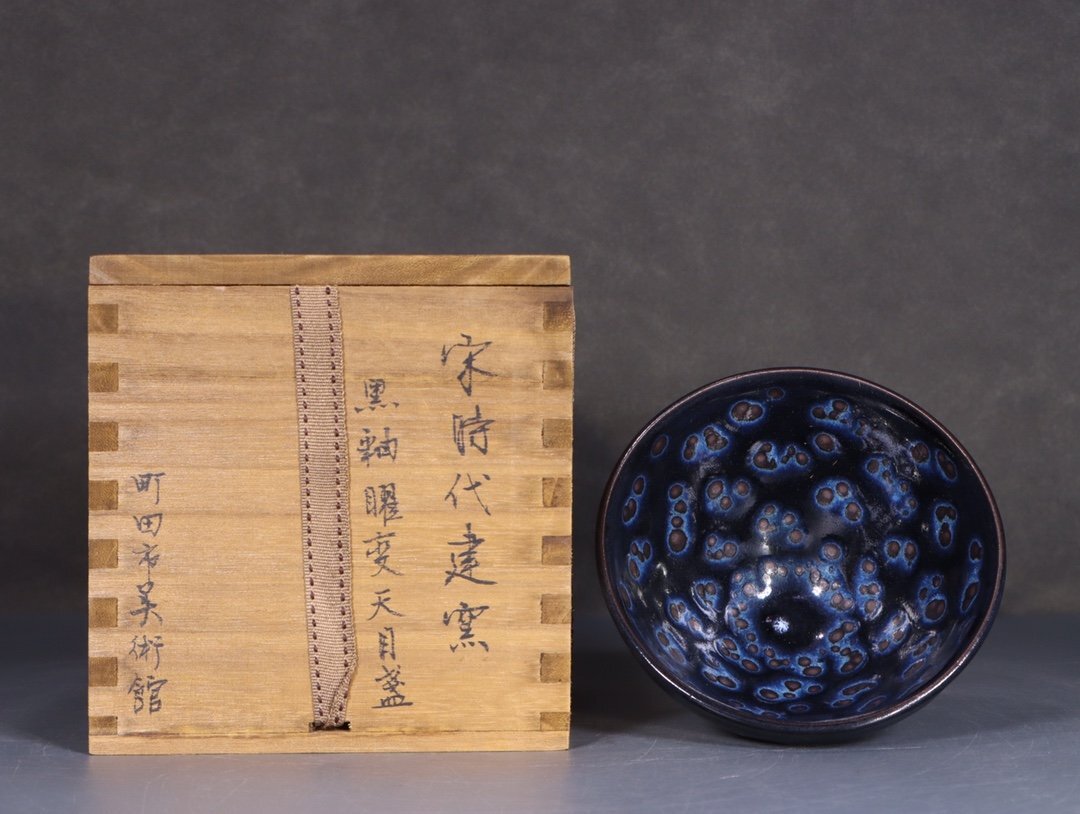 宋時代建窯
黒釉曜変天目盞
町田市美術館